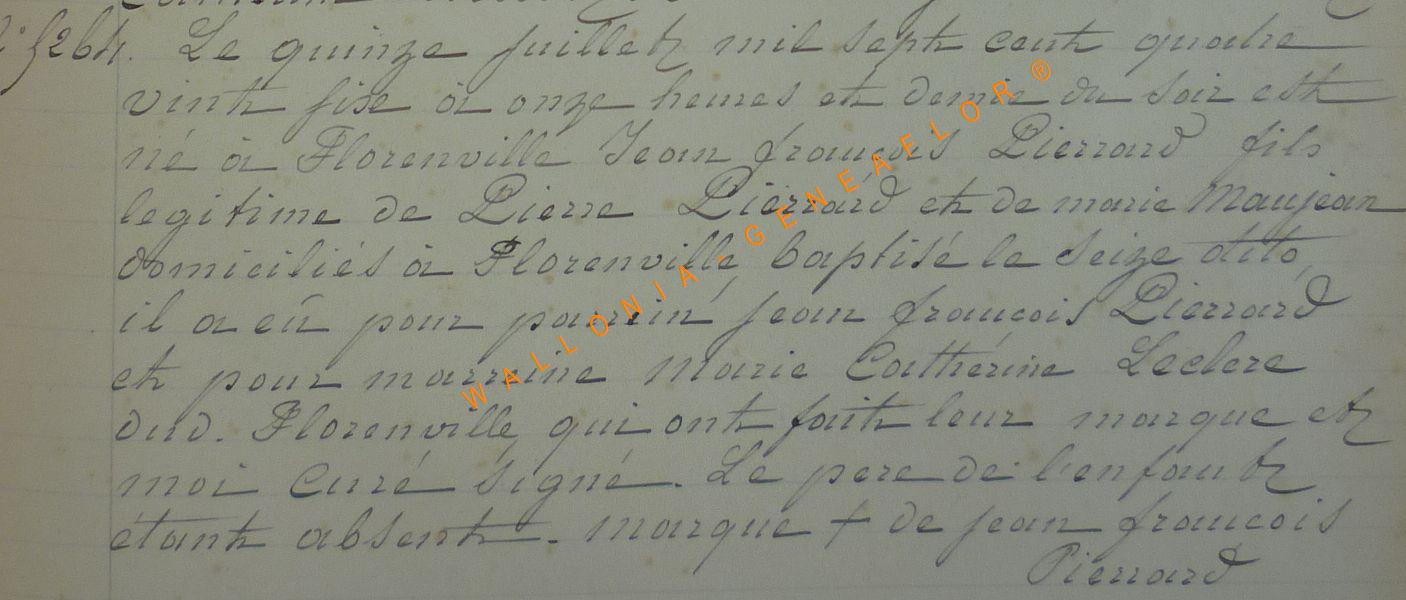 5264. Le quinze juillet mil sept cent quatre
vint sixe à onze heures et demie du soir est
né à Florenville Jean françois Pierrard fils
legitime de Pierre Pierrard et de marie Maujean
domiciliés à Florenville baptisé le seize dito,
il a eû pour parrein Jean françois Pierrard
et pour marreine Marie Catthérine Leclere
dud. Florenville qui ont fait leur marque et
moi Curé signé. Le pere de l'enfant
étant absent. marque + de jean françois
Pierrard
WALLONIA-GENEAELOR®